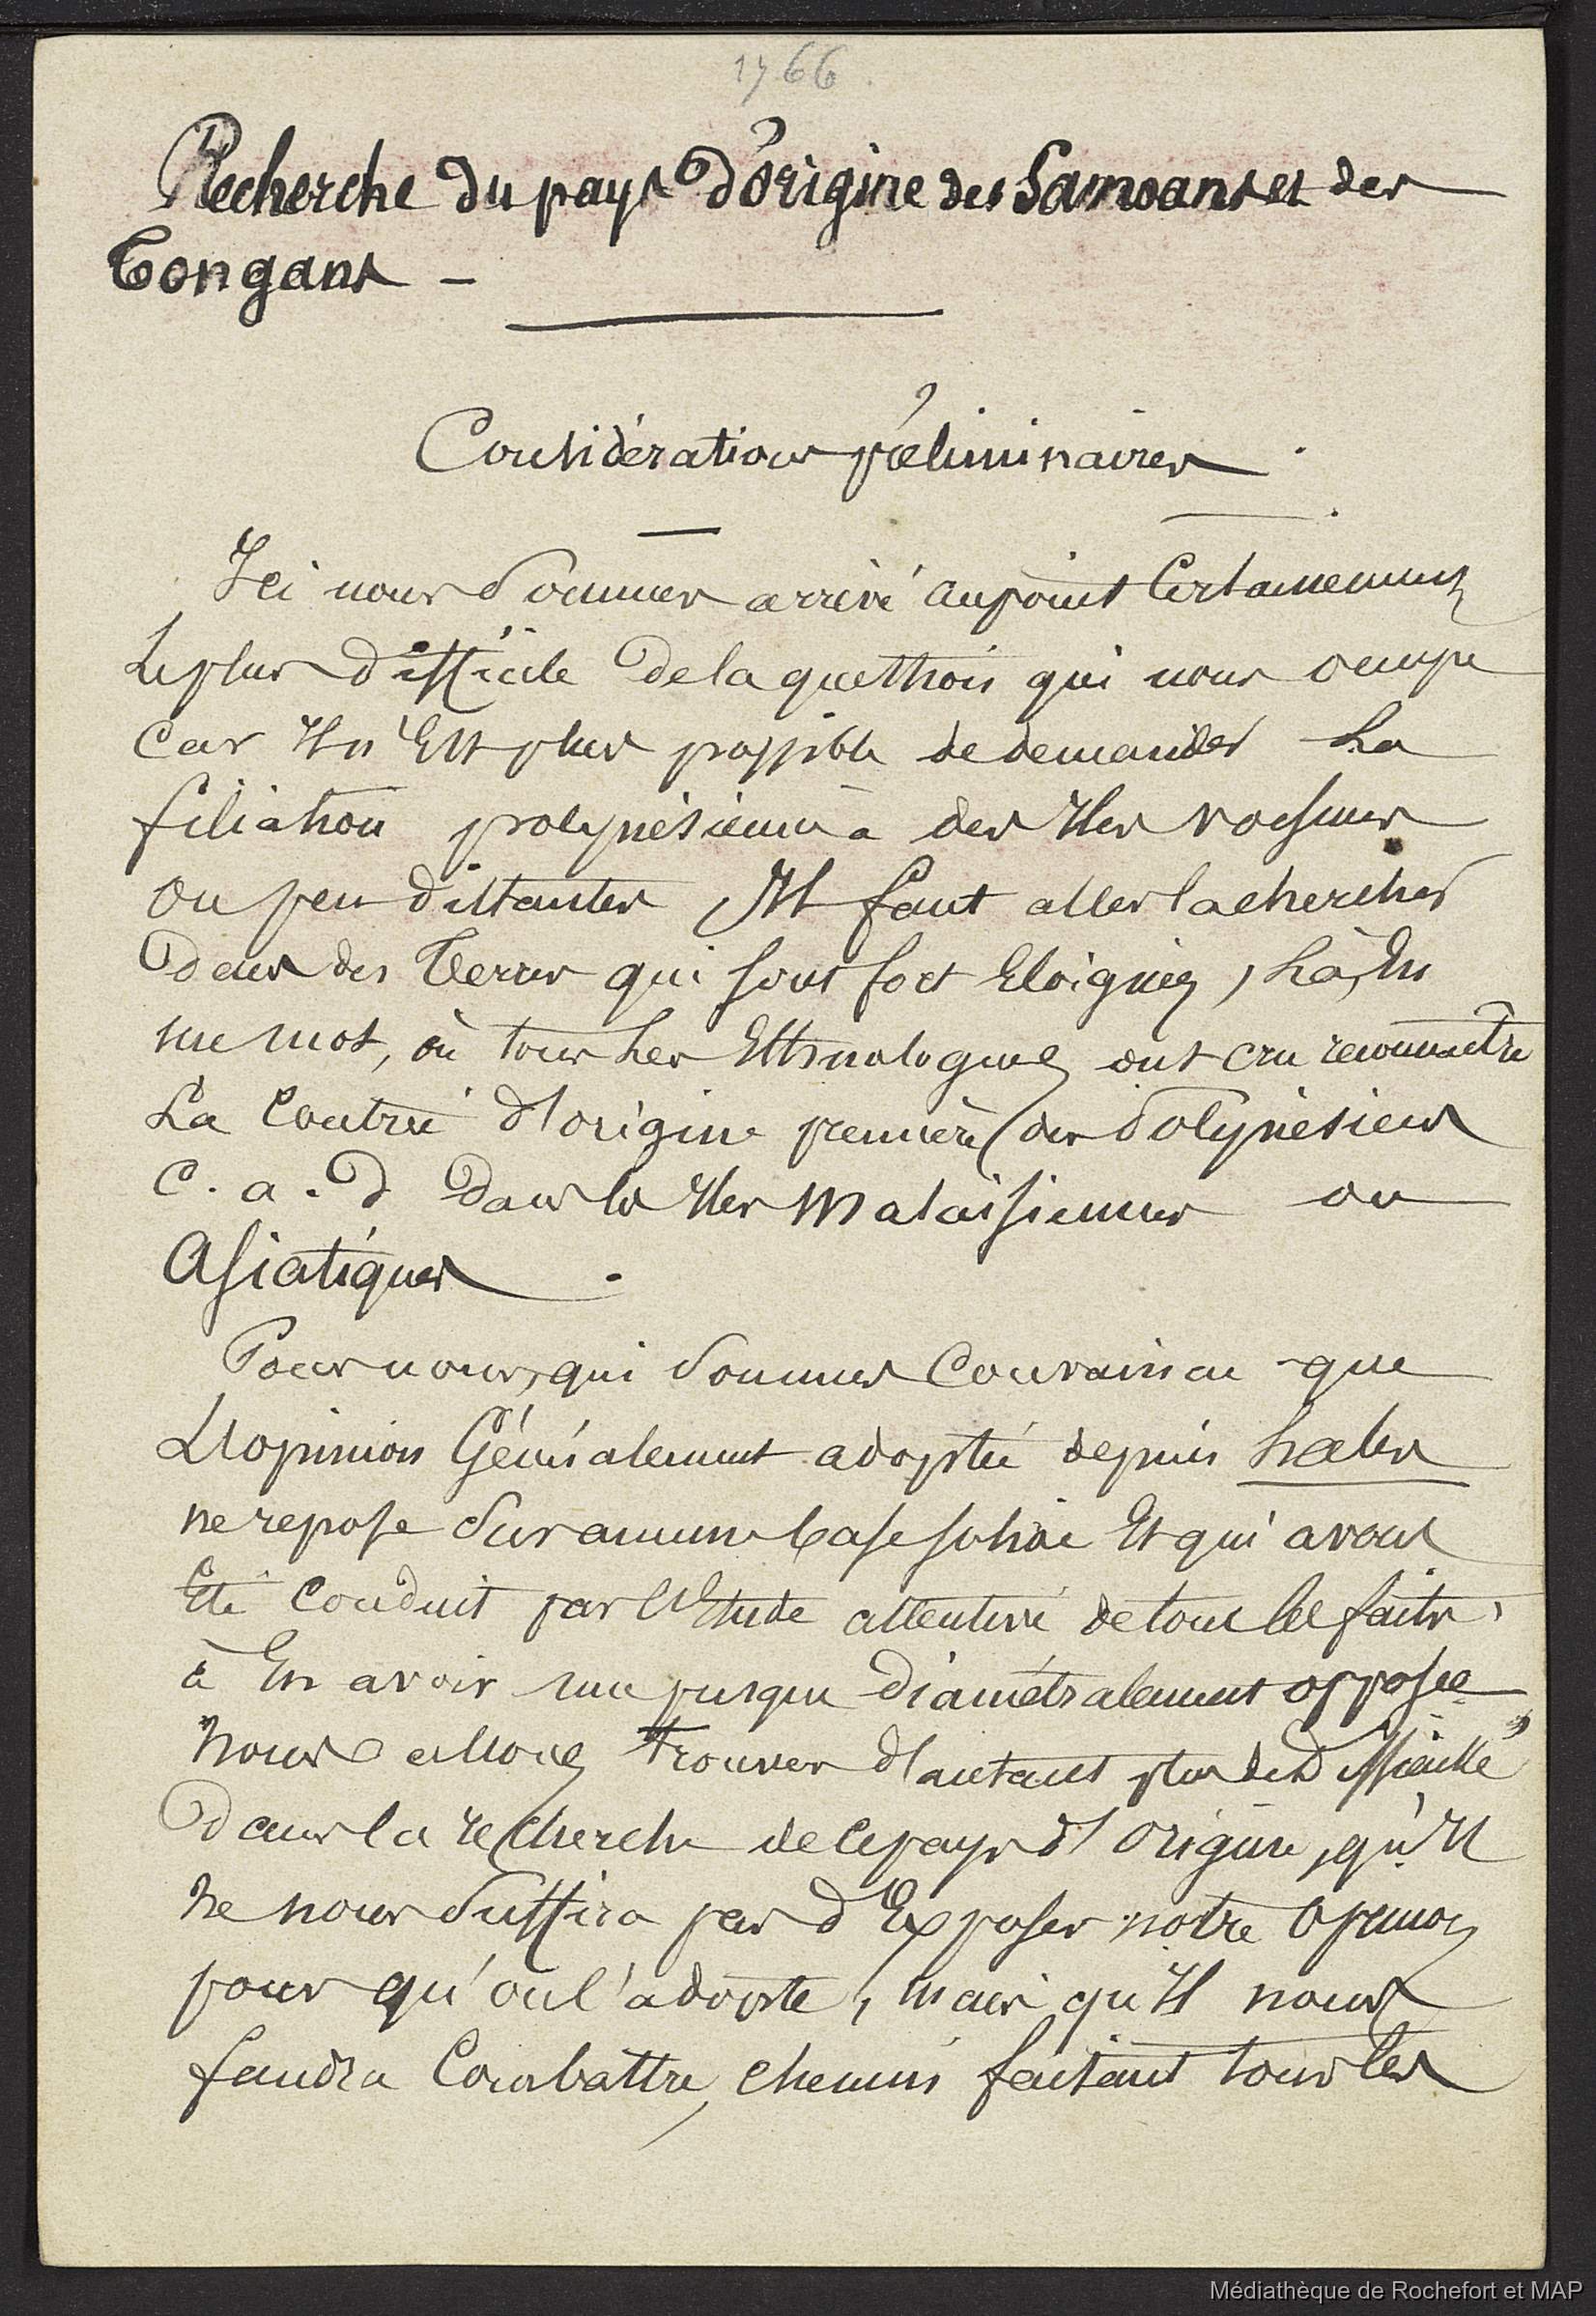 1766
Recherche du pays d'origine des Samoans et des
Tongans –
Considérations préliminaires.
Ici nous sommes arrivé au point certainement
le plus difficile de la question qui nous occupe
car il n'est plus possible de demander la
filiation polynésienne à des Iles voisines
ou peu distantes Il faut aller la chercher
dans des terres qui sont fort éloignées, là, en
un mot, où tous les Ethnologues ont cru reconnaitre
la contrée d'origine première des Polynésiens
c. a. d dans les Iles Malaisiennes ou
Asiatiques.
Pour nous, qui sommes convaincu que
l'opinion Généralement adoptée depuis hales
ne repose sur aucune base solide Et qui avons
Eté conduit par l'Etude attentive de tous les faits,
à En avoir une presque diamétralement opposée
nous allons trouver d'autant plus de difficulté
dans la recherche de ce pays d'origine, qu'il
ne nous suffira pas d'Exposer notre opinion
pour qu'on l'adopte, mais qu'Il nous
faudra combattre, chemin faisant tous les
Médiathèque de Rochefort et MAP